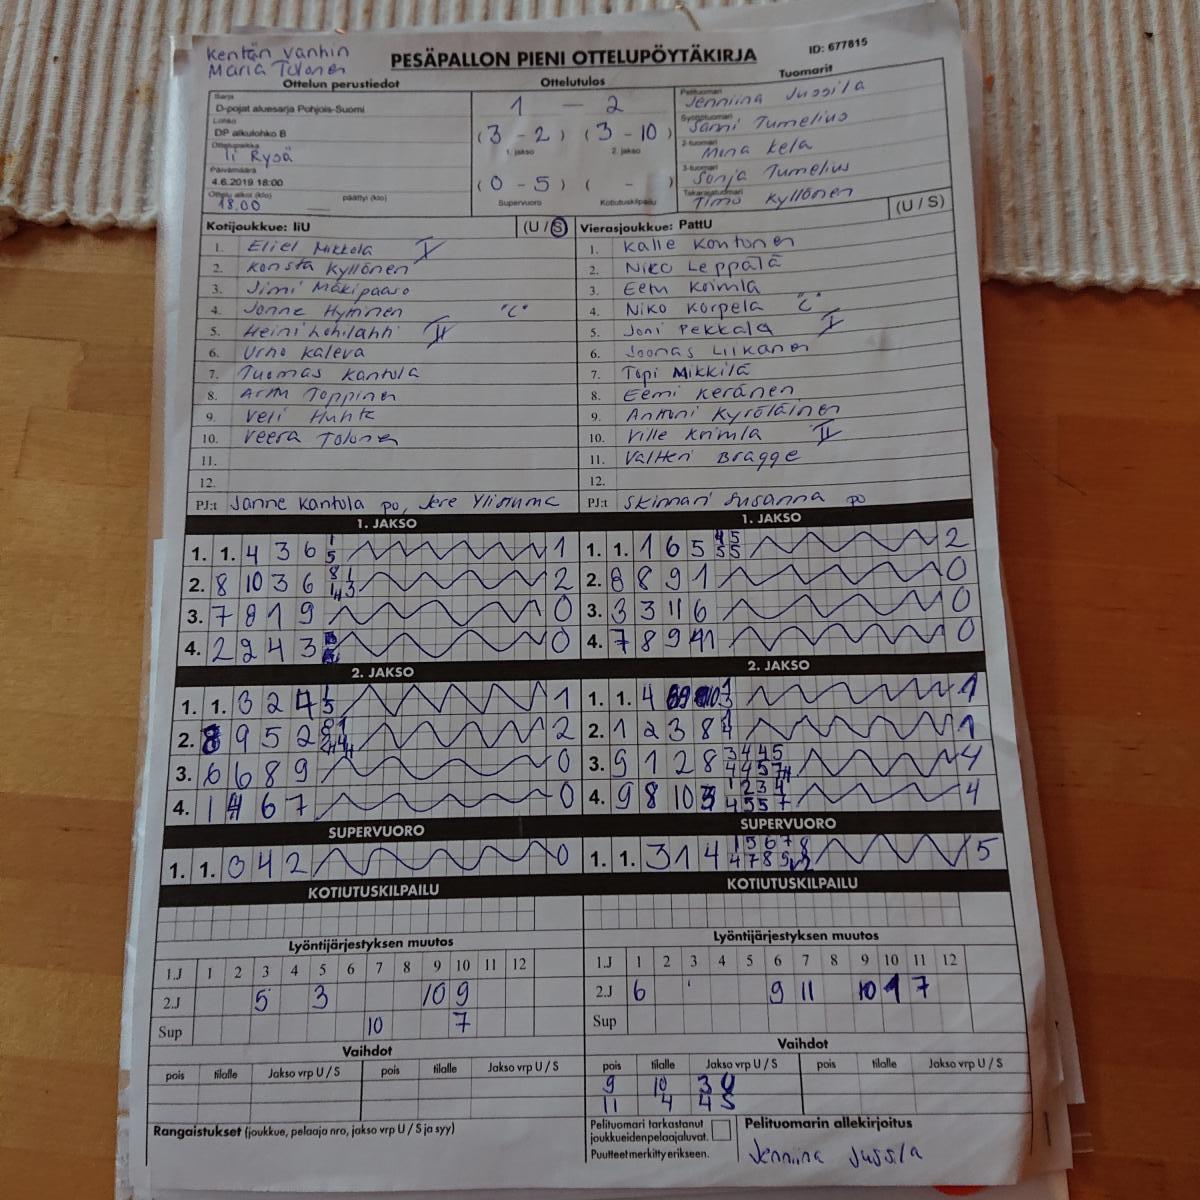 Kentän vanhin
Maria Tolonen
PESÄPALLON PIENI OTTELUPÖYTÄKIRJA
ID: 677815
Ottelun perustiedot
Sarja
D-pojat aluesarja Pohjois-Suomi
Lohko
DP alkulohko B
Ottelupaikka
Ii Rysä
Päivämäärä
4.6.2019 18:00
Ottelu alkoi (klo) päättyi (klo)
18.00
Ottelutulos
1 - 2
(3 - 2) (3 - 10)
1. jakso 2. jakso
(0 - 5) ( - )
Supervuoro Kotiutuskilpailu
Tuomarit
Pelituomari
Jenniina Jussila
Syöttötuomari
Sami Tumelius
2-tuomari
Mina Kela
3-tuomari
Sonja Tumelius
Takarajatuomari
Timo Kyllönen
Kotijoukkue: IiU (U / S)
1. Eliel Mikkola I
2. Konsta Kyllönen
3. Jimi Mäkipaaso
4. Janne Hyttinen "C"
5. Heini Lohilahti II
6. Urho Kaleva
7. Tuomas Kantola
8. Arttu Toppinen
9. Veli Huhta
10. Veera Tolonen
11.
12.
PJ:t Janne Kantola po, Jere Yliouma
Vierasjoukkue: PattU (U / S)
1. Kalle Kontonen
2. Niko Leppälä
3. Eetu Krimla
4. Niko Korpela "C"
5. Joni Pekkala I
6. Joonas Liikanen
7. Topi Mikkilä
8. Eemi Keränen
9. Anttoni Kyröläinen
10. Ville Krimla II
11. Valtteri Bragge
12.
PJ:t Skinnari Susanna po
1. JAKSO
1. 1. 4 3 6 1 5 1
2. 8 10 3 6 2
3. 7 8 1 9 0
4. 2 9 4 3 0
2. JAKSO
1. 1. 3 2 4 1
2. 8 9 5 2 2
3. 6 6 8 9 0
4. 1 4 6 7 0
SUPERVUORO
1. 1. 3 4 2 0
KOTIUTUSKILPAILU
1. JAKSO
1. 1. 1 6 5 4 5 5 5 2
2. 8 8 9 1 0
3. 3 3 11 6 0
4. 7 8 9 11 0
2. JAKSO
1. 1. 4 1
2. 1 2 3 8 1 4 1
3. 9 1 2 8 3 4 4 5 4
4. 9 8 10 3 1 2 3 4 4 5 5 7 4
SUPERVUORO
1. 1. 3 1 4 1 5 6 7 8 5
KOTIUTUSKILPAILU
Lyöntijärjestyksen muutos
1.J 1 2 3 4 5 6 7 8 9 10 11 12
2.J 5 3 10 9
Sup 10 7
Vaihdot
pois tilalle Jakso vrp U / S pois tilalle Jakso vrp U / S
Lyöntijärjestyksen muutos
1.J 1 2 3 4 5 6 7 8 9 10 11 12
2.J 6 9 11 10 1 7
Sup
Vaihdot
pois tilalle Jakso vrp U / S pois tilalle Jakso vrp U / S
9 10 3 U
11 4 4 S
Rangaistukset (joukkue, pelaaja nro, jakso vrp U / S ja syy)
Pelituomari tarkastanut
joukkueiden pelaajaluvat.
Puutteet merkitty erikseen.
Pelituomarin allekirjoitus
Jenniina Jussila